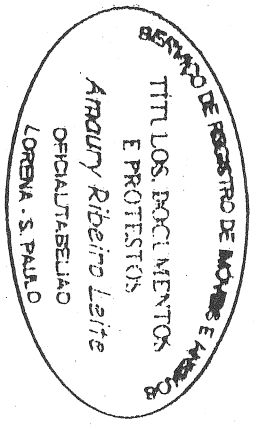 SERVIÇO DE REGISTRO DE IMÓVEIS E ANEXOS
TÍTULOS DOCUMENTOS
E PROTESTOS
Amaury Ribeiro Leite
OFICIAL/TABELIÃO
LORENA - S. PAULO